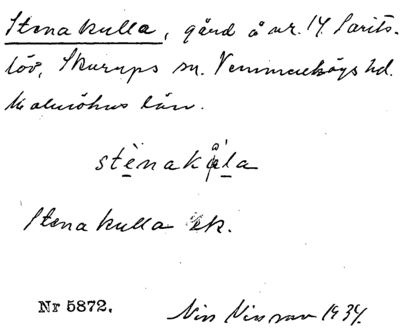 Stenakulla, gård å nr. 14 Sarits-
löv, Skurups sn. Vemmenhögs hd.
Malmöhus län.
stènakå̀la
Stenakulla ek.
Nr 5872. Nils Nilsson 1934.